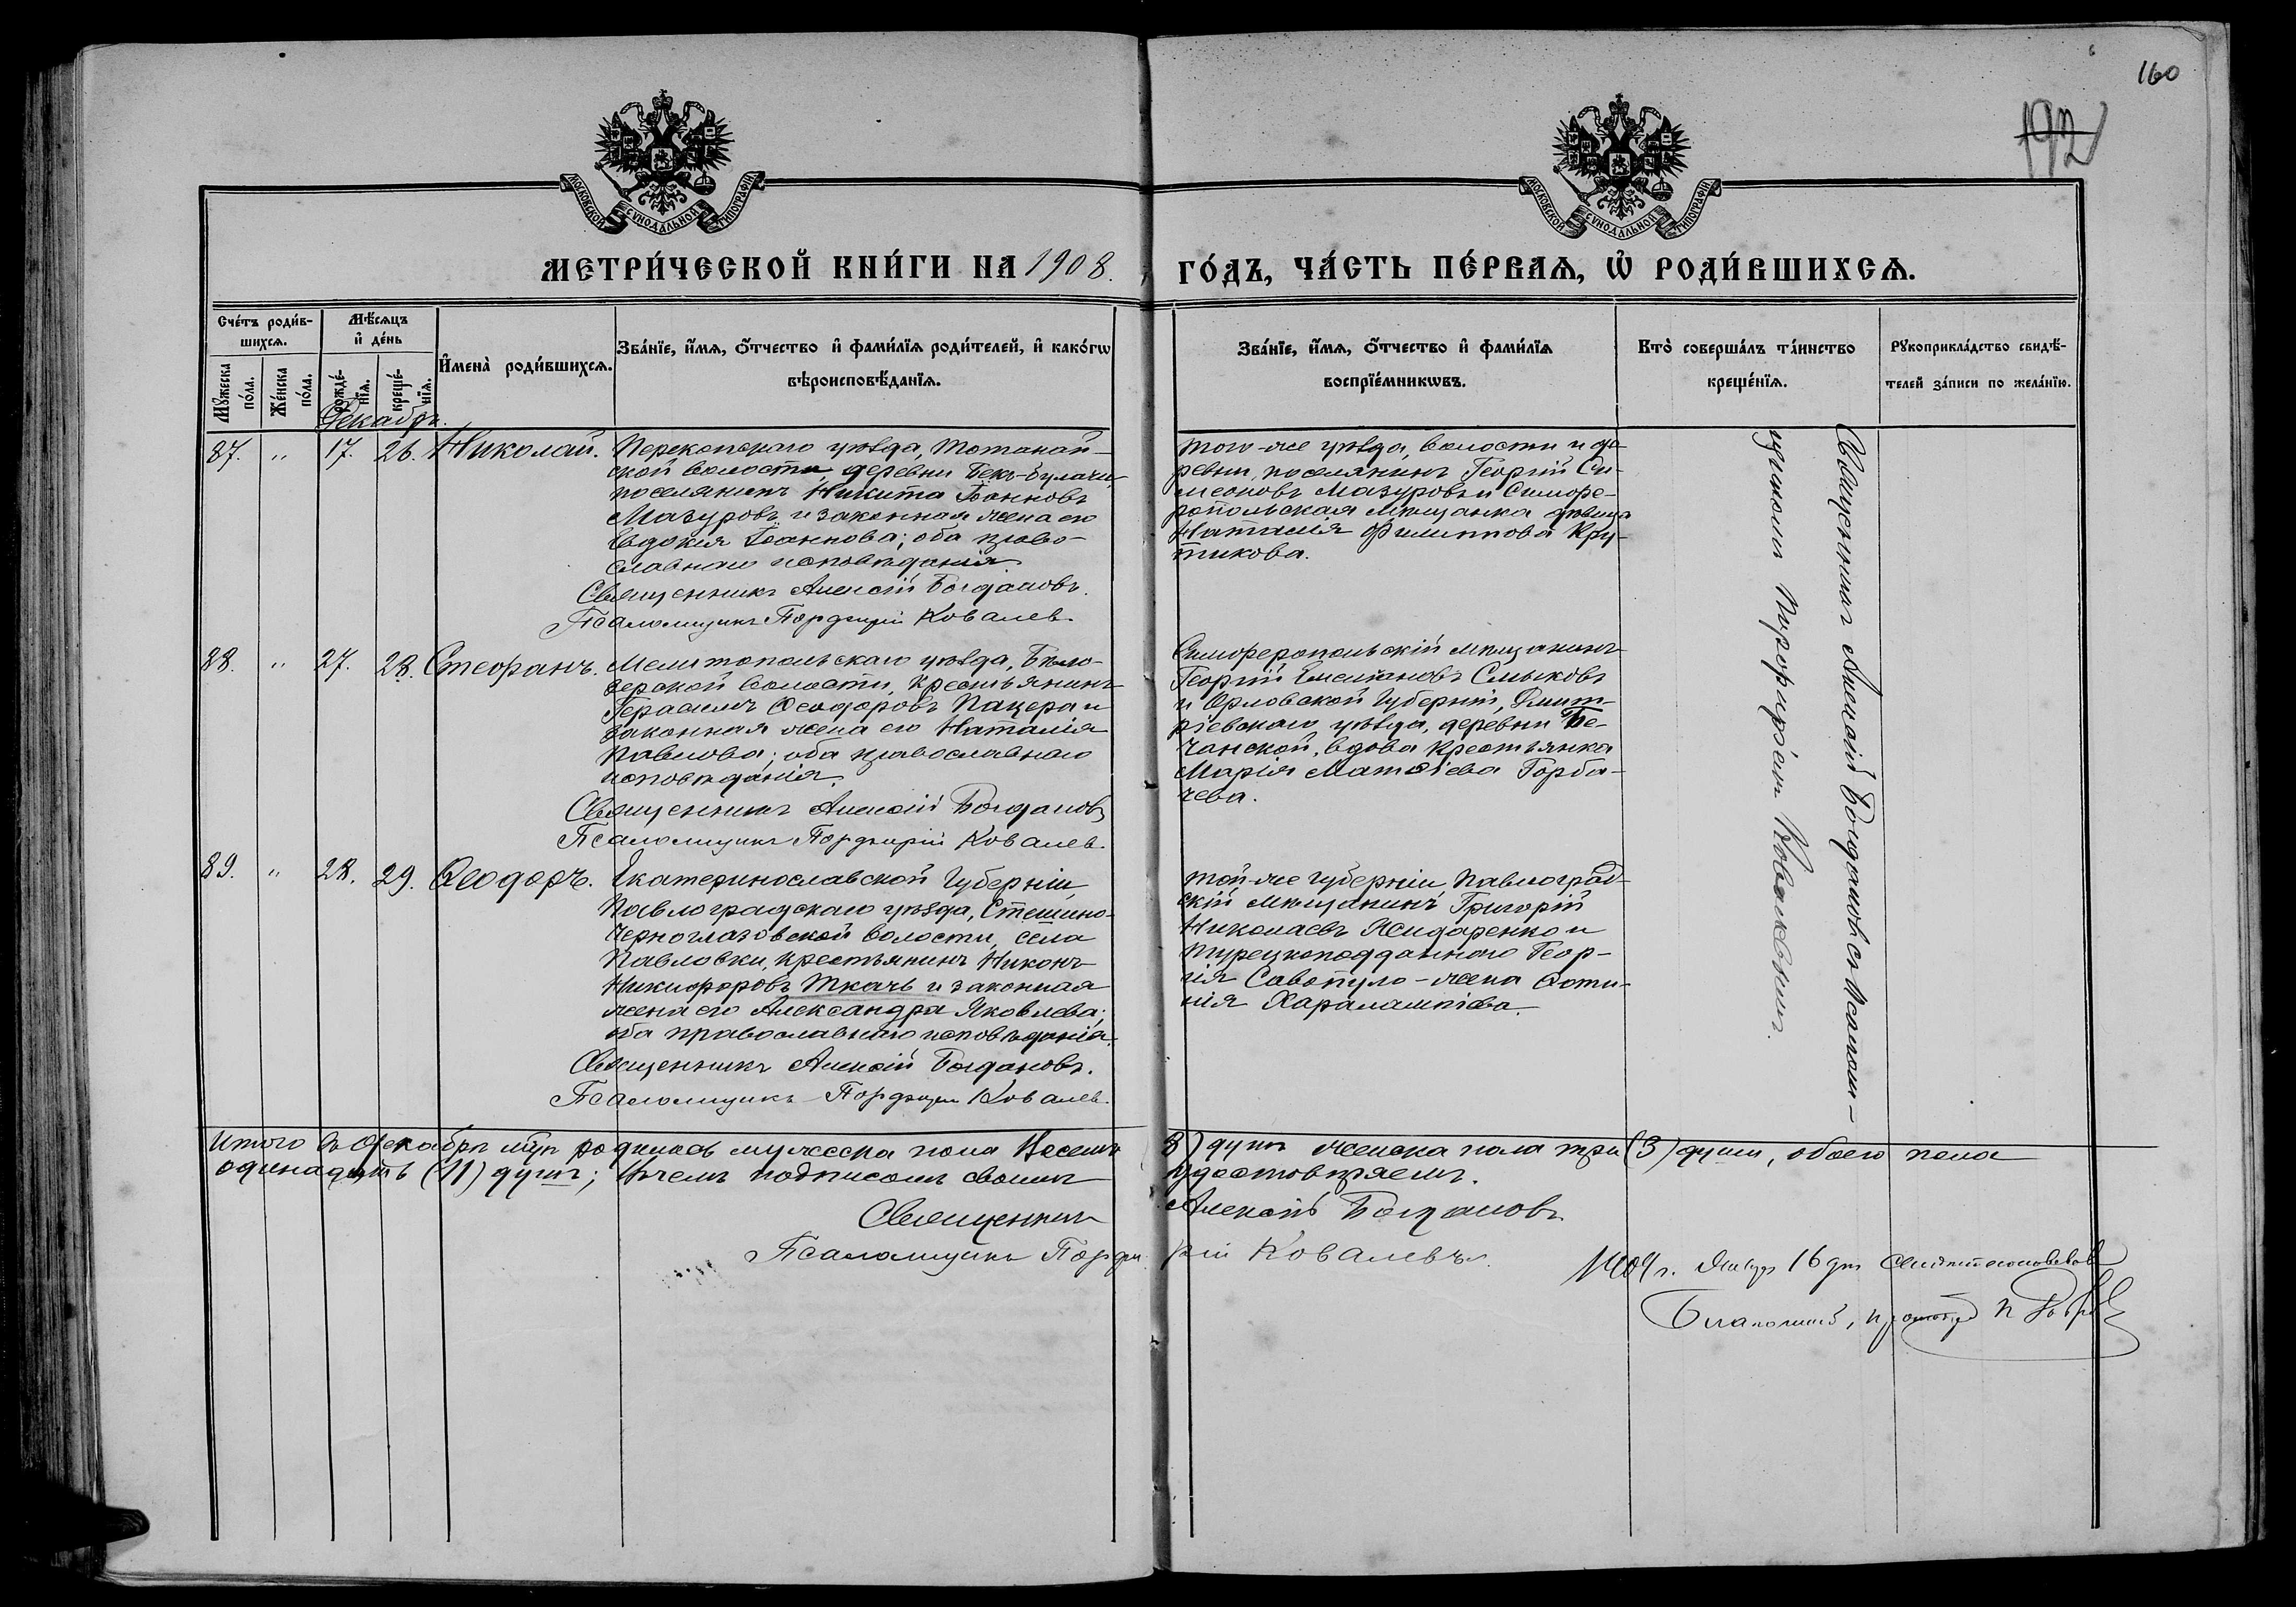 160
192
МОСКОВСКОЙ СѴНОДАЛЬНОЙ ТИПОГРАФІИ
МОСКОВСКОЙ СѴНОДАЛЬНОЙ ТИПОГРАФІИ
МЕТРИ́ЧЕСКОЙ КНИ́ГИ НА 1908.
ГО́ДЪ, ЧА́СТЬ ПЕ́РВАѦ, Ѡ҆ РОДИ́ВШИХСѦ.
Сче́тъ роди́в-
шихсѧ.
Мꙋ́жеска по́ла.
Же́нска по́ла.
Мѣ́сѧцъ
и҆ де́нь
рожде́-
нїѧ.
креще́-
нїѧ.
И҆мена̀ роди́вшихсѧ.
Зва́нїе, и҆́мѧ, ѻ҆́тчество и҆ фами́лїѧ роди́телей, и҆ како́гѡ
вѣроисповѣ́данїѧ.
Зва́нїе, и҆́мѧ, ѻ҆́тчество и҆ фами́лїѧ
воспрїе́мникѡвъ.
Кто̀ соверша́лъ та́инство
креще́нїѧ.
Рꙋкоприкла́дство свидѣ́-
телей за́писи по жела́нїю.
Декабрь.
87. " 17. 26. Николай.
Перекопскаго уѣзда, Тотанай-
ской волости, деревни Бек-Булачи,
поселянинъ Никита Іоанновъ
Мазуровъ и законная жена его
Евдокія Іоаннова; оба право-
славнаго исповѣданія
Священникъ Алексій Богдановъ.
Псаломщикъ Порфирій Ковалев.
того-же уѣзда, волости и де-
ревни, поселянинъ Георгій Си-
меоновъ Мазуровъ и Симфе-
ропольская мѣщанка дѣвица
Наталія Филиппова Кру-
тикова.
88. " 27. 28. Стефанъ.
Мелитопольскаго уѣзда, Бѣло-
зерской волости, крестьянинъ
Герасимъ Ѳеодоровъ Пацера и
законная жена его Наталія
Павлова; оба православнаго
исповѣданія.
Священникъ Алексій Богдановъ
Псаломщикъ Порфирій Ковалев.
Симферопольскій мѣщанинъ
Георгій Смыковъ
и Орловской губерніи, Дмит-
ріевскаго уѣзда, деревни Бе-
чанской, вдова крестьянка
Марія Матѳіева Горба-
чева.
89. " 28. 29. Ѳеодоръ.
Екатеринославской губерніи
Павлоградскаго уѣзда,
Черноглазовской волости, села
Павловки, крестьянинъ Никонъ
Никифоровъ Ткачь и законная
жена его Александра Яковлева;
оба православнаго исповѣданія.
Священникъ Алексій Богдановъ.
Псаломщикъ Порфирій Ковалев.
той-же губерніи, Павлоград-
скій мѣщанинъ Григорій
Николаевъ и
турецкоподданнаго Геор-
гія Савопуло - жена Фоти-
нія Харалампіева.
Священникъ Алексій Богдановъ съ псалом-
щикомъ Порфиріемъ Ковалевымъ.
Итого въ Декабрѣ мѣц родилось мужеска пола восемь (8) душъ женска пола три (3) души, обоего пола
одинадцать (11) душъ; въ чемъ подписомъ своимъ удостовѣряемъ.
Священникъ Алексій Богдановъ
Псаломщикъ Порфирій Ковалевъ.
1909 г. Января 16 дня свидѣтельствовалъ
Благочинный,